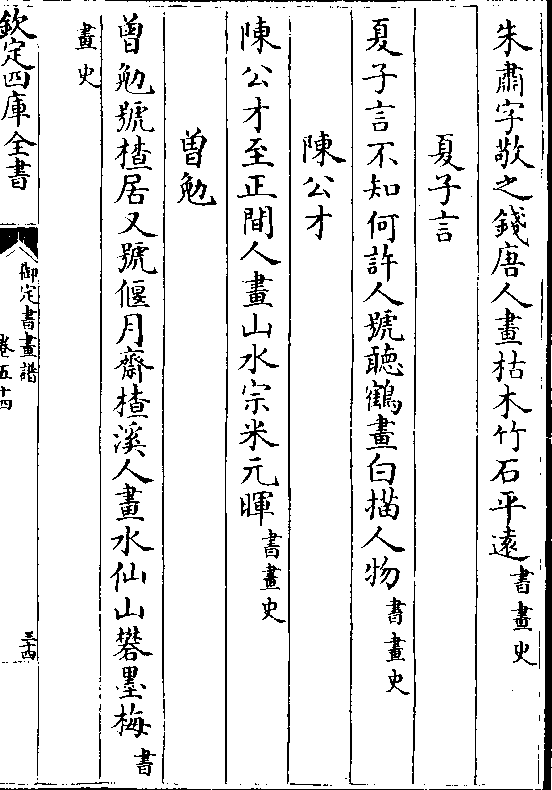 朱肅字敬之錢唐人畫枯木竹石平遠書畫史
夏子言
夏子言不知何許人號聽鶴畫白描人物書畫史
陳公才
陳公才至正間人畫山水宗米元暉書畫史
曽勉
曽勉號楂居又號偃月齋楂溪人畫水仙山礬墨梅書
畫史
欽定四庫全書
御定書畫譜
卷五十四
三十四